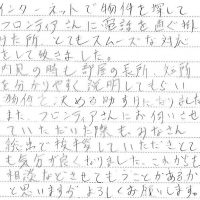 インターネットで物件を探して
フロンティアさんに電話を直ぐ掛
けた所、とてもスムーズな対応
をして頂きました。
内見の時も、部屋の長所、短所
を分かりやすく説明してもらい
物件を決める助すけになりました
また、フロンティアさんにお伺いさせ
ていただいた際も、みなさん
総出で挨拶していただきとて
も気分が良くなりました。これからも
相談などさせてもらうことがあるか
と思いますが よろしくお願いします。